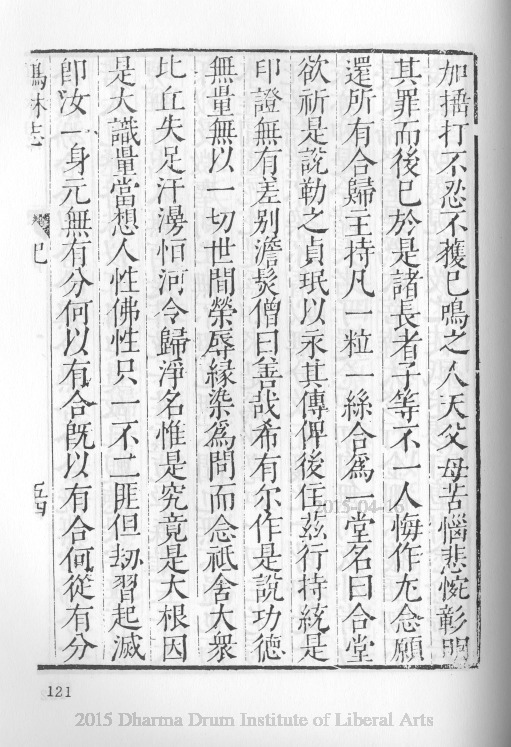 加搭打不忍不獲已鳴之人天父母苦惱悲惋彰明
其罪而後已於是諸長者子等不一人悔作尤念願
還所有合歸主持凡一粒一絲合為一堂名曰合堂
欲祈是說勒之貞珉以永其傳俾後住茲行持統是
印證無有差别澹髮僧曰善哉希有尔作是說功德
無量無以一切世間榮辱緣染為問而念祇舍大衆
比丘失足汗漫恒河令歸淨名惟是究竟是大根因
是大識量當想人性佛性只一不二匪但刼習起滅
卽汝一身元無有分何以有合旣以有合何從有分
林志
記
五四
121
2015-04-16
2015 Dharma Drum Institute of Liberal Arts